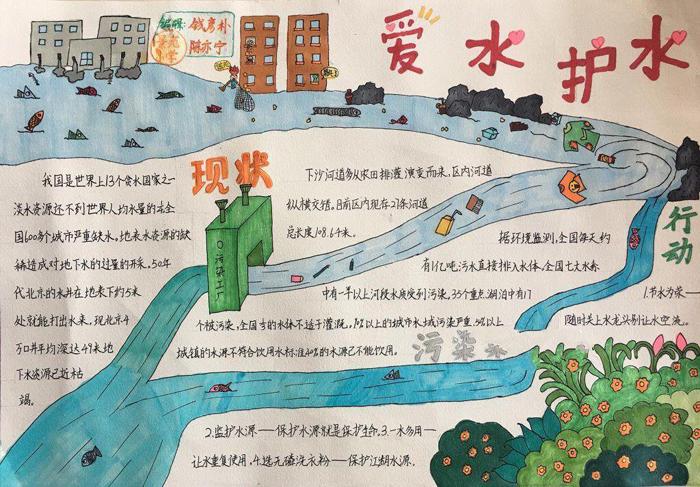 爱水护水
编辑：钱彦朴
陈亦宁
现状
我国是世界上13个贫水国家之一
淡水资源还不到世界人均水量的
国600多个城市严重缺水。地表水资源的缺
稀造成对地下水的过量的开采，50年
代北京的水井在地表下约5米
处就能打出水来，现北京4
万口井平均深达49米地
下水资源已近枯
竭。
污染工厂
下沙河道多从农田排灌演变而来，区内河道
纵横交错。目前区内现存21条河道
总长度108.64米。
据环境监测，全国每天约
有1亿吨污水直接排入水体。全国七大水系
中有一半以上河段水质受到污染，35个重点湖泊中有17
个被污染，全国的水体不适于灌溉，
的城市水域污染严重，
城镇的水源不符合饮用水标准40%的水源已不能饮用。
污染水
行动
1.节水为荣——
随时关上水龙头别让水空流。
2.监护水源——保护水源就是保护生命。3.一水多用——
让水重复使用，4.选无磷洗衣粉——保护江湖水源。